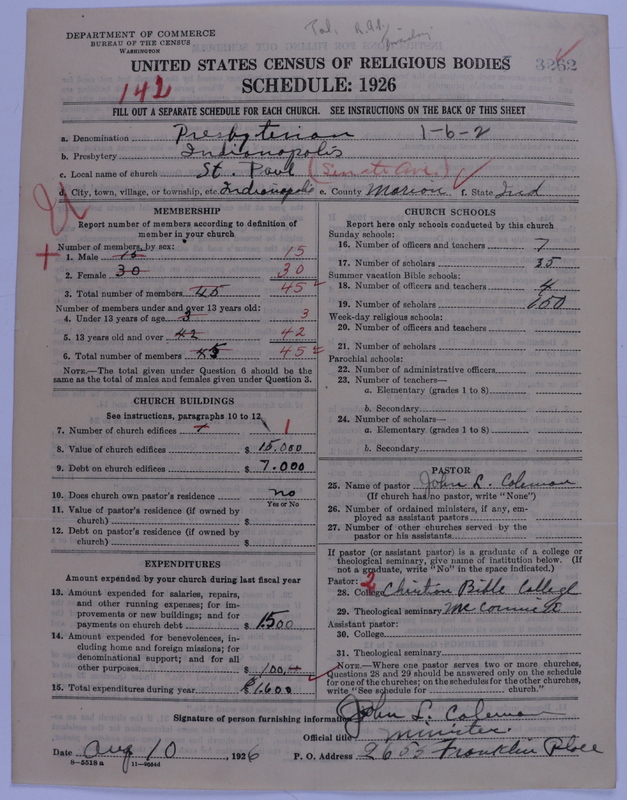 DEPARTMENT OF COMMERCE
BUREAU OF THE CENSUS
WASHINGTON
UNITED STATES CENSUS OF RELIGIOUS BODIES
3262
SCHEDULE: 1926
142
FILL OUT A SEPARATE SCHEDULE FOR EACH CHURCH. SEE INSTRUCTIONS ON THE BACK OF THIS SHEET
a. Denomination Presbyterian 1-6-2
b. Presbytery Indianapolis
c. Local name of church St. Paul (Senate Ave.)
d. City, town, village, or township, etc. Indianapolis e. County Marion f. State Ind
MEMBERSHIP
Report number of members according to definition of
member in your church
Number of members, by sex:
1. Male 15 15
2. Female 30 30
3. Total number of members 45 45
Number of members under and over 13 years old:
4. Under 13 years of age 3 3
5. 13 years old and over 42 42
6. Total number of members 45 45
NOTE.—The total given under Question 6 should be
the same as the total of males and females given under Question 3.
CHURCH BUILDINGS
See instructions, paragraphs 10 to 12
7. Number of church edifices 1 1
8. Value of church edifices $ 15.000
9. Debt on church edifices $ 7.000
10. Does church own pastor's residence no
Yes or No
11. Value of pastor's residence (if owned by
church) $
12. Debt on pastor's residence (if owned by
church) $
EXPENDITURES
Amount expended by your church during last fiscal year
13. Amount expended for salaries, repairs,
and other running expenses; for im-
provements or new buildings; and for
payments on church debt $ 1500
14. Amount expended for benevolences, in-
cluding home and foreign missions; for
denominational support; and for all
other purposes $ 100.
15. Total expenditures during year $ 1.600
CHURCH SCHOOLS
Report here only schools conducted by this church
Sunday schools:
16. Number of officers and teachers 7
17. Number of scholars 35
Summer vacation Bible schools:
18. Number of officers and teachers 4
19. Number of scholars
Week-day religious schools:
20. Number of officers and teachers
21. Number of scholars
Parochial schools:
22. Number of administrative officers
23. Number of teachers—
a. Elementary (grades 1 to 8)
b. Secondary
24. Number of scholars—
a. Elementary (grades 1 to 8)
b. Secondary
PASTOR
25. Name of pastor John L. Coleman
(If church has no pastor, write "None")
26. Number of ordained ministers, if any, em-
ployed as assistant pastors
27. Number of other churches served by the
pastor or his assistants
If pastor (or assistant pastor) is a graduate of a college or
theological seminary, give name of institution below. (If
not a graduate, write "No" in the space indicated.)
Pastor: 2
28. College Christian Bible College
29. Theological seminary
Assistant pastor:
30. College
31. Theological seminary
NOTE.—Where one pastor serves two or more churches,
Questions 28 and 29 should be answered only on the schedule
for one of the churches; on the schedules for the other churches,
write "See schedule for church."
Signature of person furnishing information John L. Coleman
Official title Minister
Date Aug 10 1926 P. O. Address 2653 Franklin Place
8-5518 a